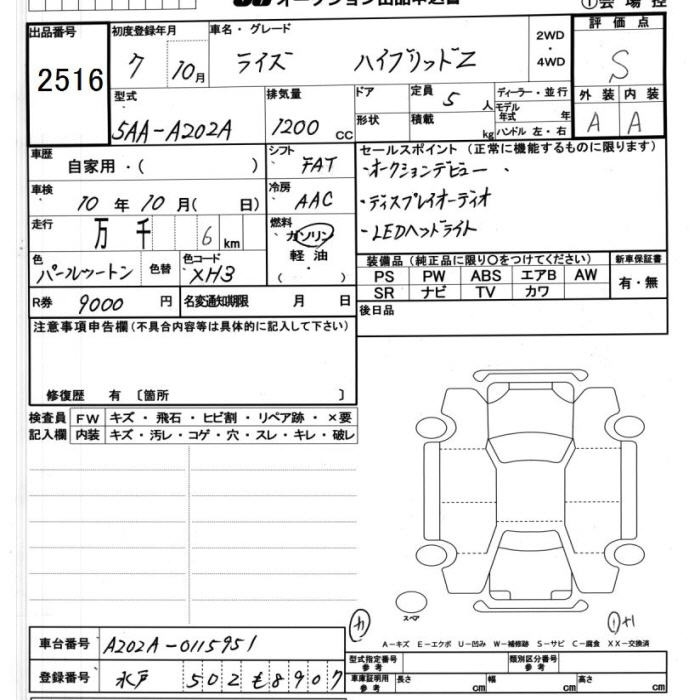 オークション出品申込書 ①会場控
出品番号 初度登録年月 車名・グレード 2WD・4WD 評価点
2516 7 10月 ライズ ハイブリッドZ S
型式 排気量 ドア 定員 5 人 ディーラー・並行 外装 内装
5AA-A202A 1200 CC 形状 積載 kg モデル年式 年 ハンドル 左・右 A A
車歴 シフト セールスポイント (正常に機能するものに限ります)
自家用・( ) FAT ・オークションデビュー
車検 10年10月( 日) 冷房 AAC ・ディスプレイオーディオ
走行 万 千 6 km 燃料 ガソリン 軽油 ( ・ ) ・LEDヘッドライト
色 パールツートン 色替 色コード XH3
装備品 (純正品に限り○をつけてください) 新車保証書
PS PW ABS エアB AW 有・無
SR ナビ TV カワ
R券 9000 円 名変通知期限 月 日 後日品
注意事項申告欄(不具合内容等は具体的に記入して下さい)
修復歴 有 〔箇所 〕
検査員 FW キズ・飛石・ヒビ割・リペア跡・×要
記入欄 内装 キズ・汚レ・コゲ・穴・スレ・キレ・破レ
スペア
カ ①+1
A-キズ E-エクボ U-凹み W-補修跡 S-サビ C-腐食 XX-交換済
車台番号 A202A-0115951 型式指定番号 参考 類別区分番号 参考
登録番号 水戸 502 も 8907 車庫証明用 参考 長さ cm 幅 cm 高さ cm